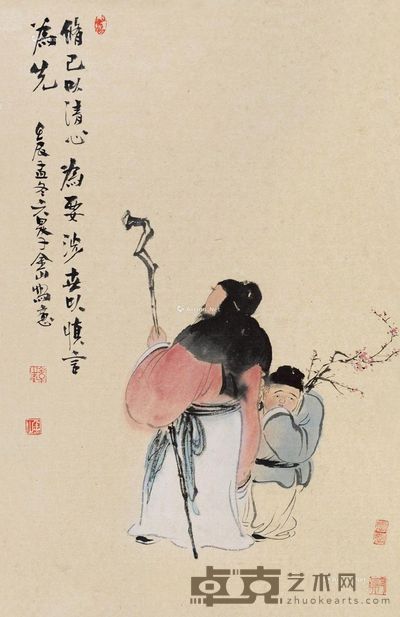 脩己以清心為要涉世以慎言
為先
壬辰孟冬六泉子金山
卓克艺术网
www.zhuokearts.com